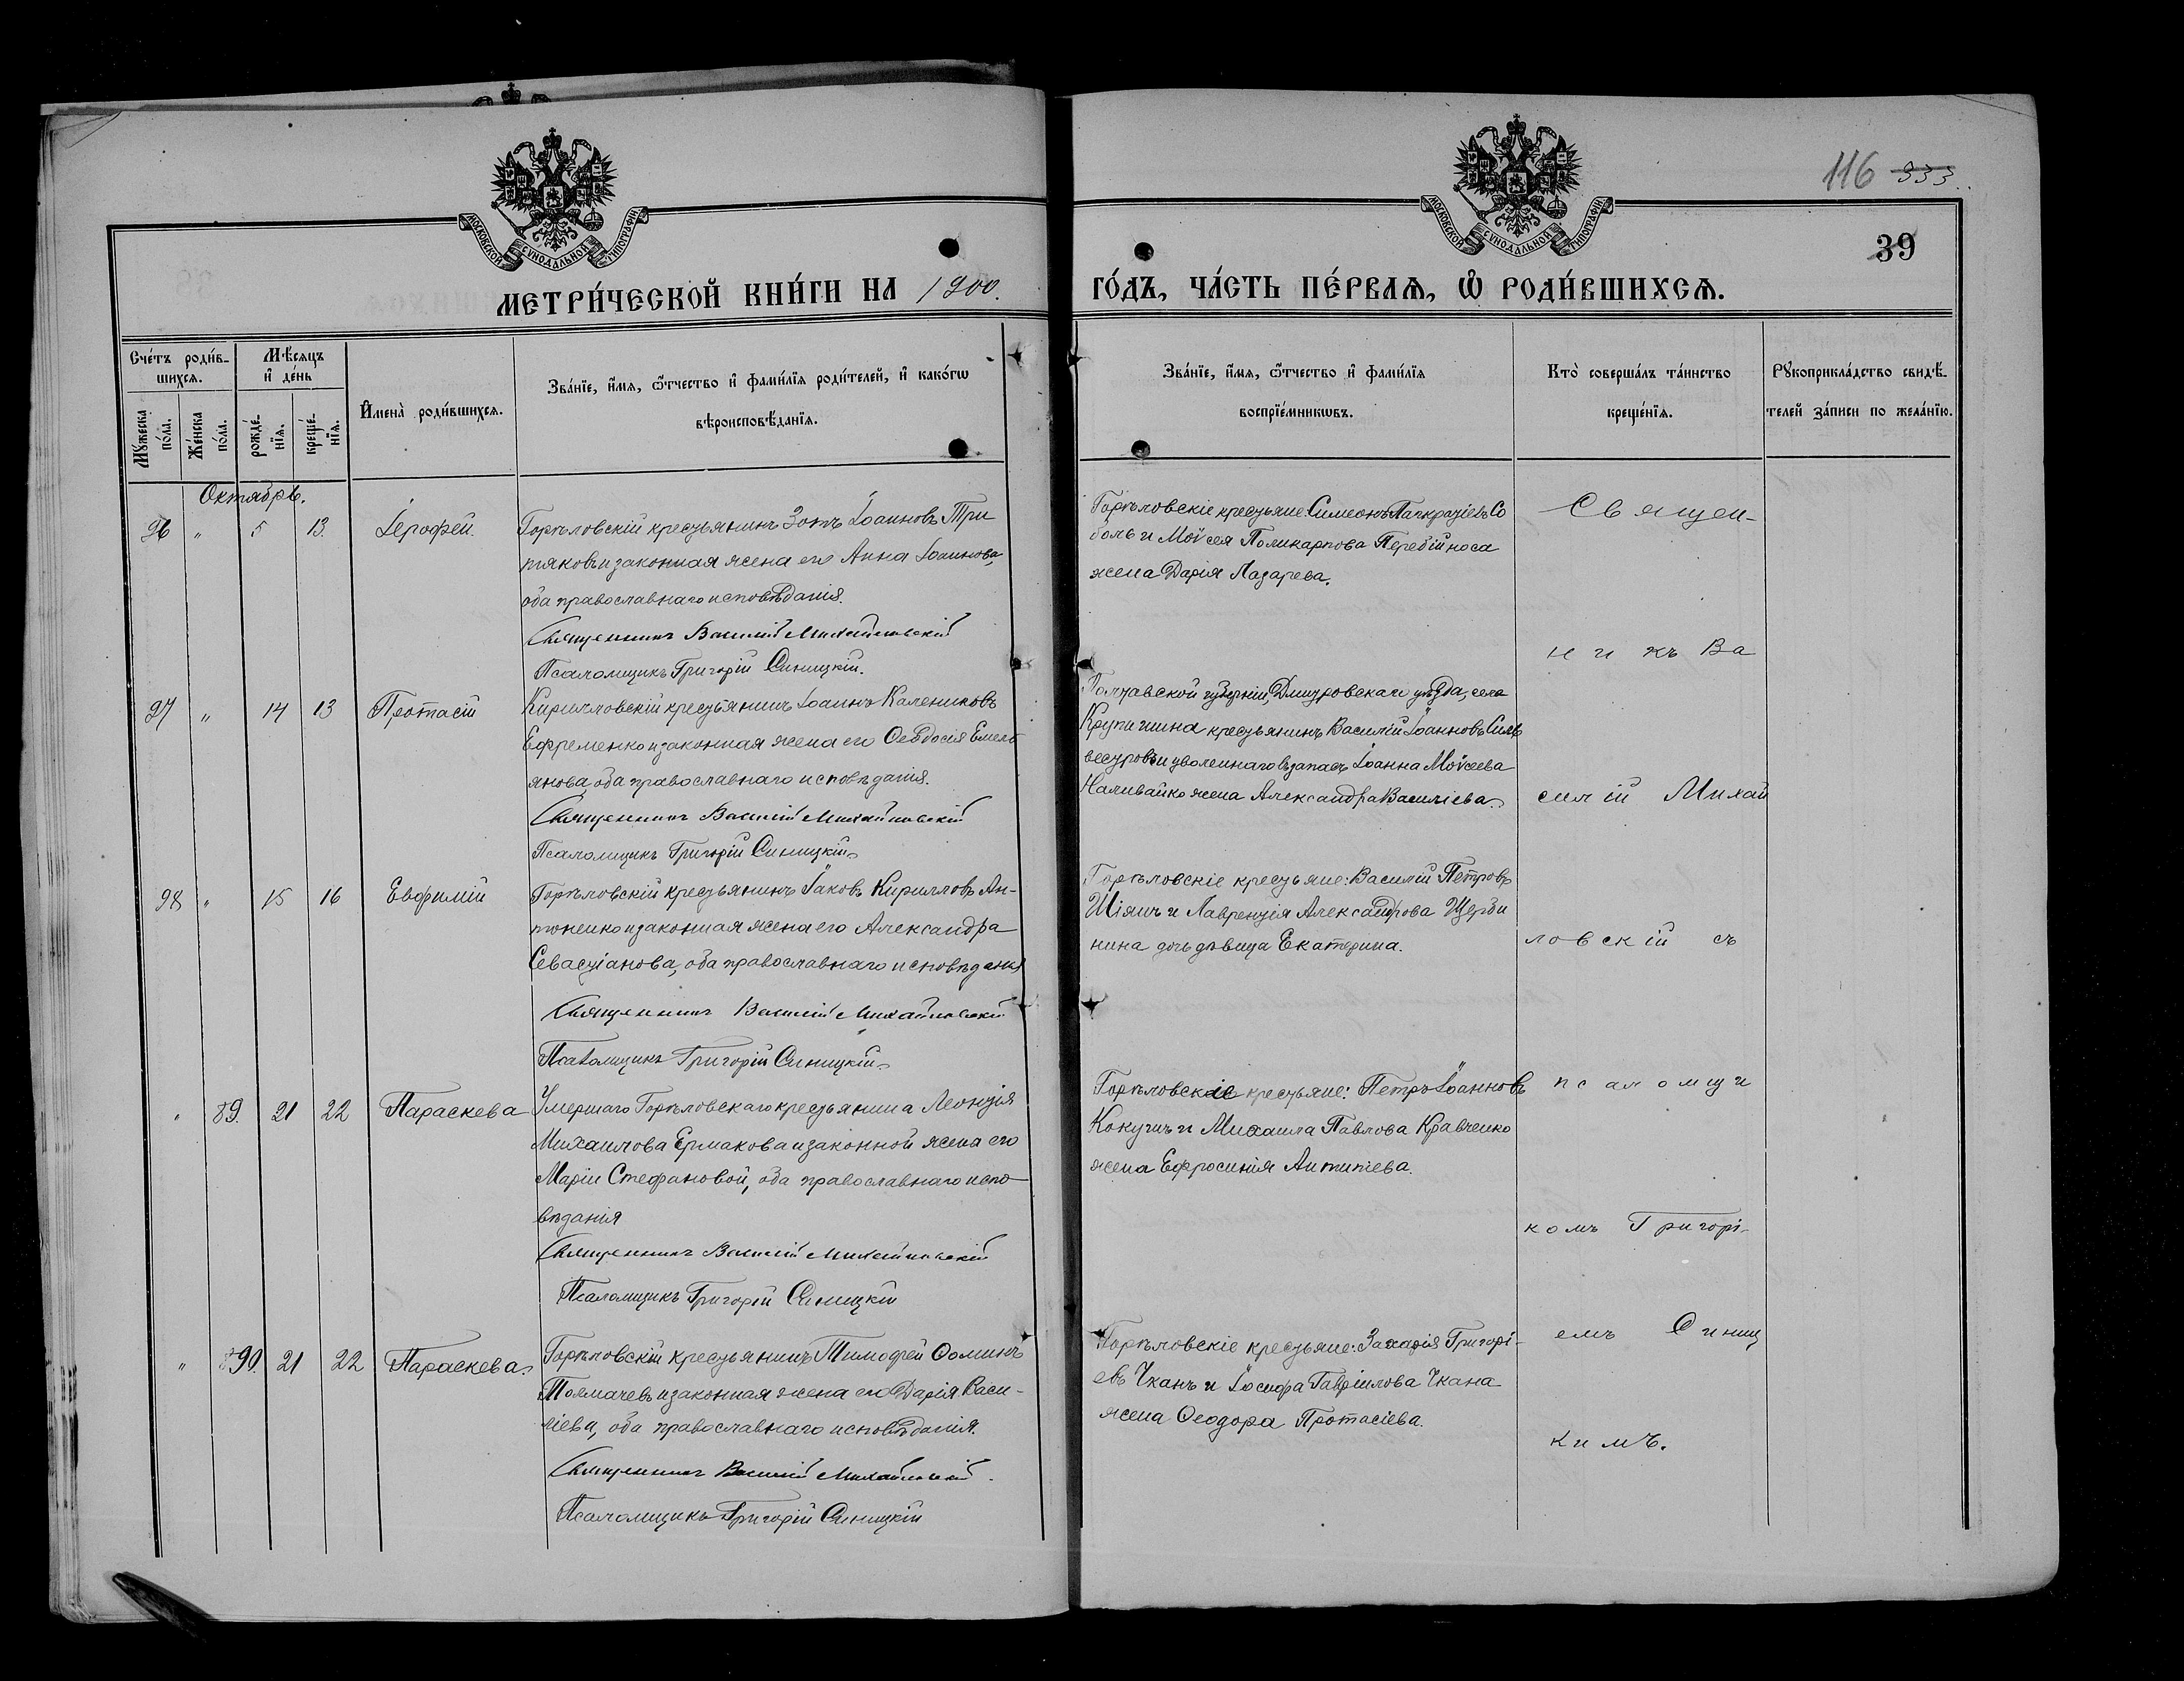 116 333
39
МОСКОВСКОЙ СѴНОДАЛЬНОЙ ТИПОГРАФІИ
МОСКОВСКОЙ СѴНОДАЛЬНОЙ ТИПОГРАФІИ
МЕТРИ́ЧЕСКОЙ КНИ́ГИ НА 1900.
ГО́ДЪ, ЧА́СТЬ ПЕ́РВАѦ, Ѡ҆ РОДИ́ВШИХСѦ.
Сче́тъ роди́в-
шихсѧ.
Мѣ́сѧцъ
и҆ де́нь
Мꙋ́жеска по́ла.
Же́нска по́ла.
рожде́-
нїѧ.
креще́-
нїѧ.
И҆мена̀ роди́вшихсѧ.
Зва́нїе, и҆́мѧ, ѻ҆́тчество и҆ фами́лїѧ роди́телей, и҆ како́гѡ
вѣроисповѣ́данїѧ.
Зва́нїе, и҆́мѧ, ѻ҆́тчество и҆ фами́лїѧ
воспрїе́мникѡвъ.
Кто̀ соверша́лъ та́инство
креще́нїѧ.
Рꙋкоприкла́дство свидѣ́-
телей за́писи по жела́нїю.
Октябрь.
96 " 5 13. Іерофей.
Горѣловскій крестьянинъ Зотъ Іоанновъ Три
тяковъ и законная жена его Анна Іоаннова,
оба православнаго исповѣданія.
Священникъ Василій Михайловскій
Псаломщикъ Григорій Синицкій.
Горѣловскіе крестьяне: Симеонъ Панкратіевъ Со
боль и Моѵсея Поликарпова Перебійноса
жена Дарія Лазарева.
97 " 14 13 Протасій
Кирилловскій крестьянинъ Іоаннъ Калениковъ
Ефременко и законная жена его Ѳеодосія Емель
янова, оба православнаго исповѣданія.
Священникъ Василій Михайловскій
Псаломщикъ Григорій Синицкій
Полтавской губерніи, уѣзда, села
крестьянинъ Василій Іоанновъ Силь
вестровъ и уволеннаго въ запасъ Іоанна Моѵсеева
Наливайко жена Александра Василіева.
98 " 15 16 Евфимій
Горѣловскій крестьянинъ Іаковъ Кирилловъ Ан-
тоненко и законная жена его Александра
Севастіанова, оба православнаго исповѣданія
Священникъ Василій Михайловскій
Псаломщикъ Григорій Синицкій
Горѣловскіе крестьяне: Василій Петровъ
Шіянъ и Лаврентія Александрова Щерби
нина дочь дѣвица Екатерина.
" 89. 21 22 Параскева
Умершаго Горѣловскаго крестьянина Леонтія
Михаилова Ермакова и законной жена его
Маріи Стефановой, оба православнаго испо-
вѣданія
Священникъ Василій Михайловскій
Псаломщикъ Григорій Синицкій
Горѣловскіе крестьяне: Петръ Іоанновъ
и Михаила Павлова Кравченко
жена Ефросинія Антипіева.
" 90. 21 22 Параскева.
Горѣловскій крестьянинъ Тимофей Ѳоминъ
Толмачевъ и законная жена его Дарія Васи-
ліева, оба православнаго исповѣданія.
Священникъ Василій Михайловскій.
Псаломщикъ Григорій Синицкій
Горѣловскіе крестьяне: Захарія Григорі-
евъ Чканъ и Іосифа Гавріилова Чкана
жена Ѳеодора Протасіева.
Священ-
никъ Ва
силій Михай
ловскій съ
псаломщи
комъ Григорі-
емъ Синиц
кимъ.